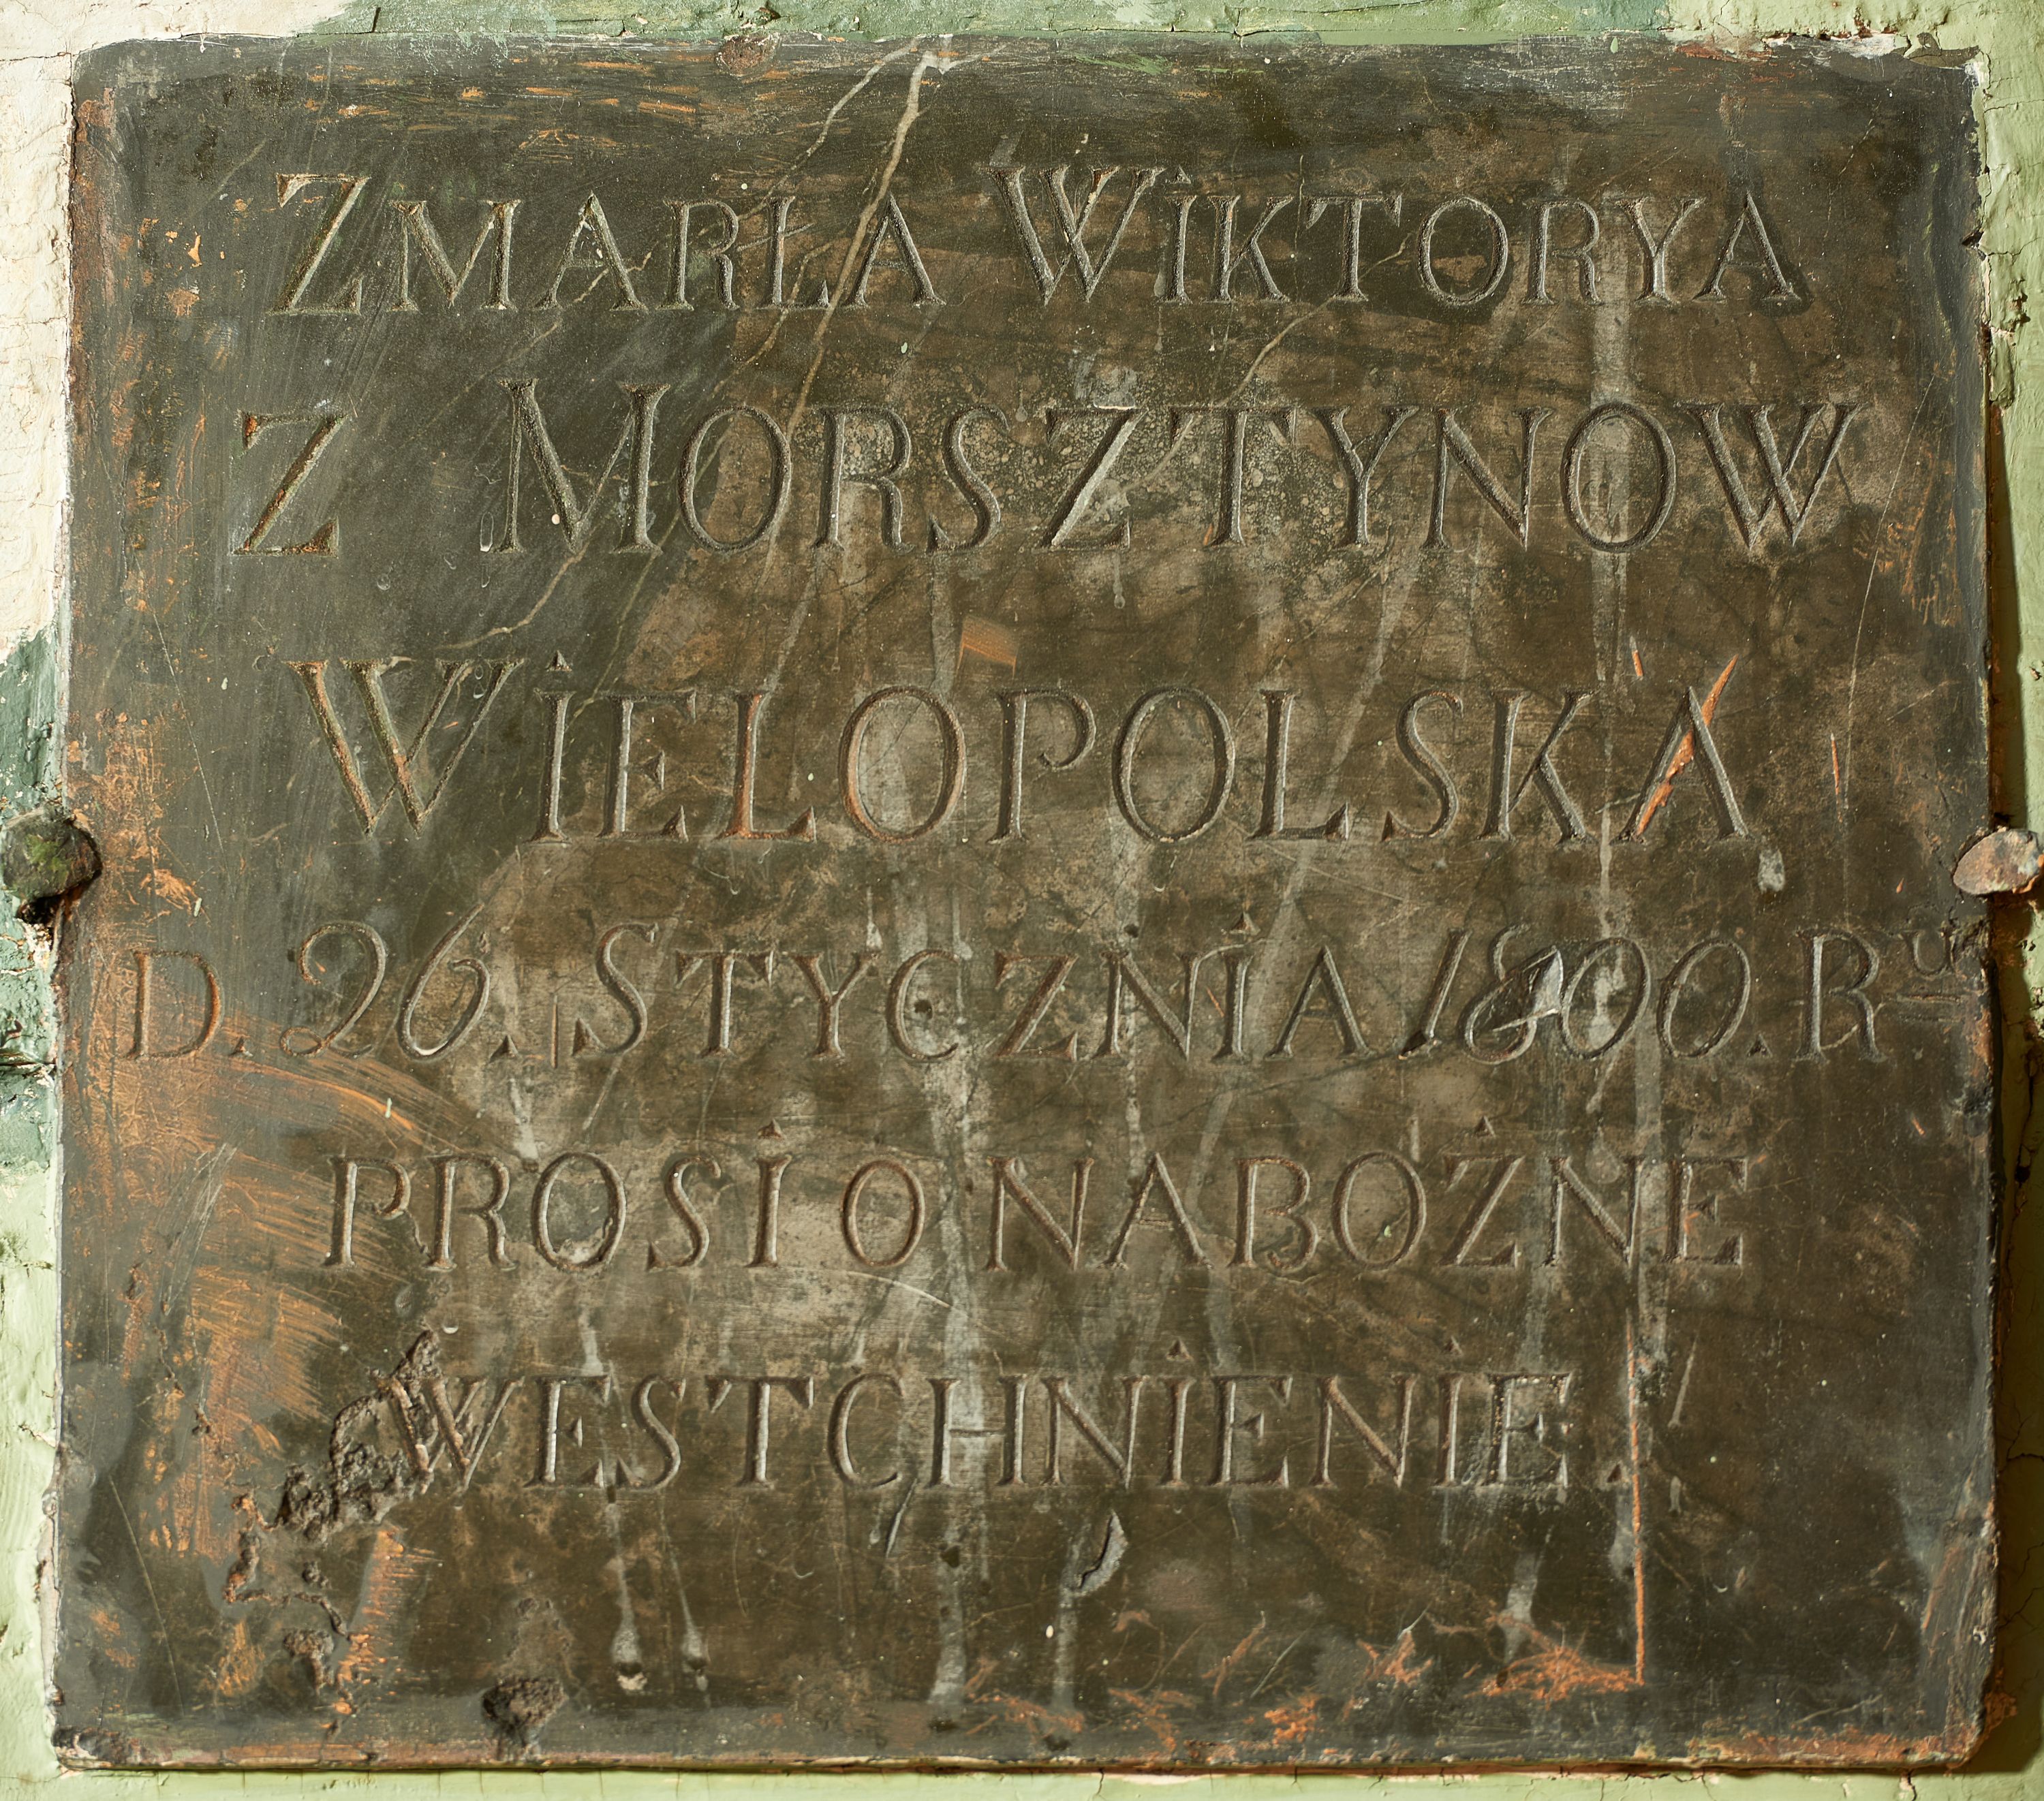 ZMARŁA WiKTORYA
Z MORSZTYNOW
WiELOPOLSKA
D. 26. STYCZNiA 1800. Ru
PROSi O NABOŻNE
WESTCHNiENiE.